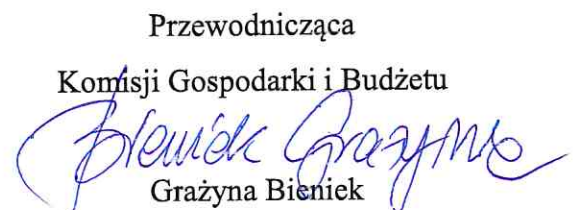 Przewodnicząca
Komisji Gospodarki i Budżetu
Bieniek Grażyna
Grażyna Bieniek